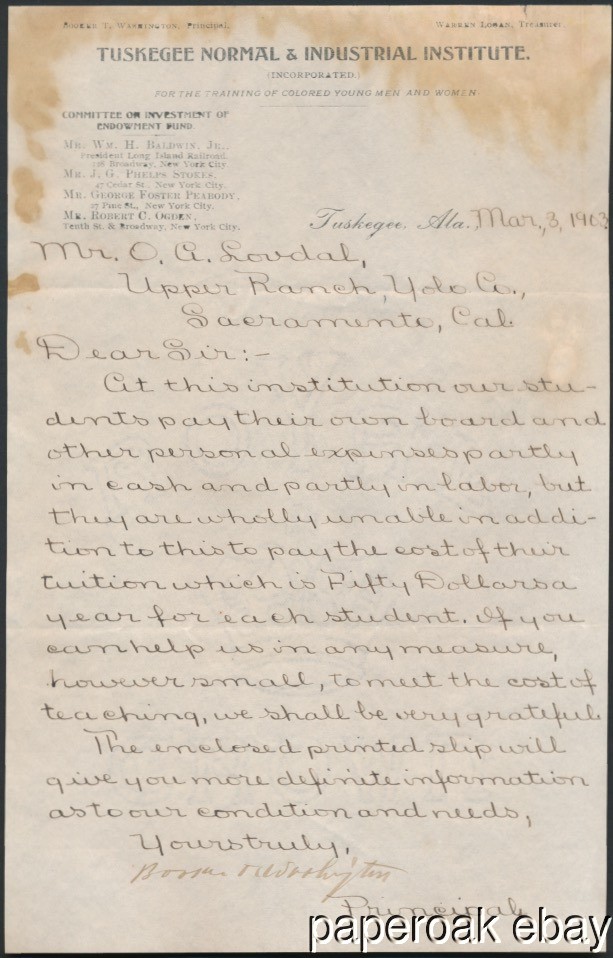 BOOKER T. WASHINGTON, Principal. WARREN LOGAN, Treasurer.
TUSKEGEE NORMAL & INDUSTRIAL INSTITUTE.
(INCORPORATED.)
FOR THE TRAINING OF COLORED YOUNG MEN AND WOMEN
COMMITTEE ON INVESTMENT OF
ENDOWMENT FUND.
MR. WM. H. BALDWIN, JR.,
President Long Island Railroad.
128 Broadway, New York City.
MR. J. G. PHELPS STOKES,
47 Cedar St., New York City.
MR. GEORGE FOSTER PEABODY,
27 Pine St., New York City.
MR. ROBERT C. OGDEN,
Tenth St. & Broadway, New York City.
Tuskegee, Ala., Mar, 3, 1903
Mr. O. A. Lovdal,
Upper Ranch, Yolo Co.,
Sacramento, Cal.
Dear Sir:-
At this institution our stu-
dents pay their own board and
other personal expenses partly
in cash and partly in labor, but
they are wholly unable in addi-
tion to this to pay the cost of their
tuition which is Fifty Dollars a
year for each student. If you
can help us in any measure,
however small, to meet the cost of
teaching, we shall be very grateful.
The enclosed printed slip will
give you more definite information
as to our condition and needs,
Yours truly,
Booker T. Washington
Principal.
paperoak ebay